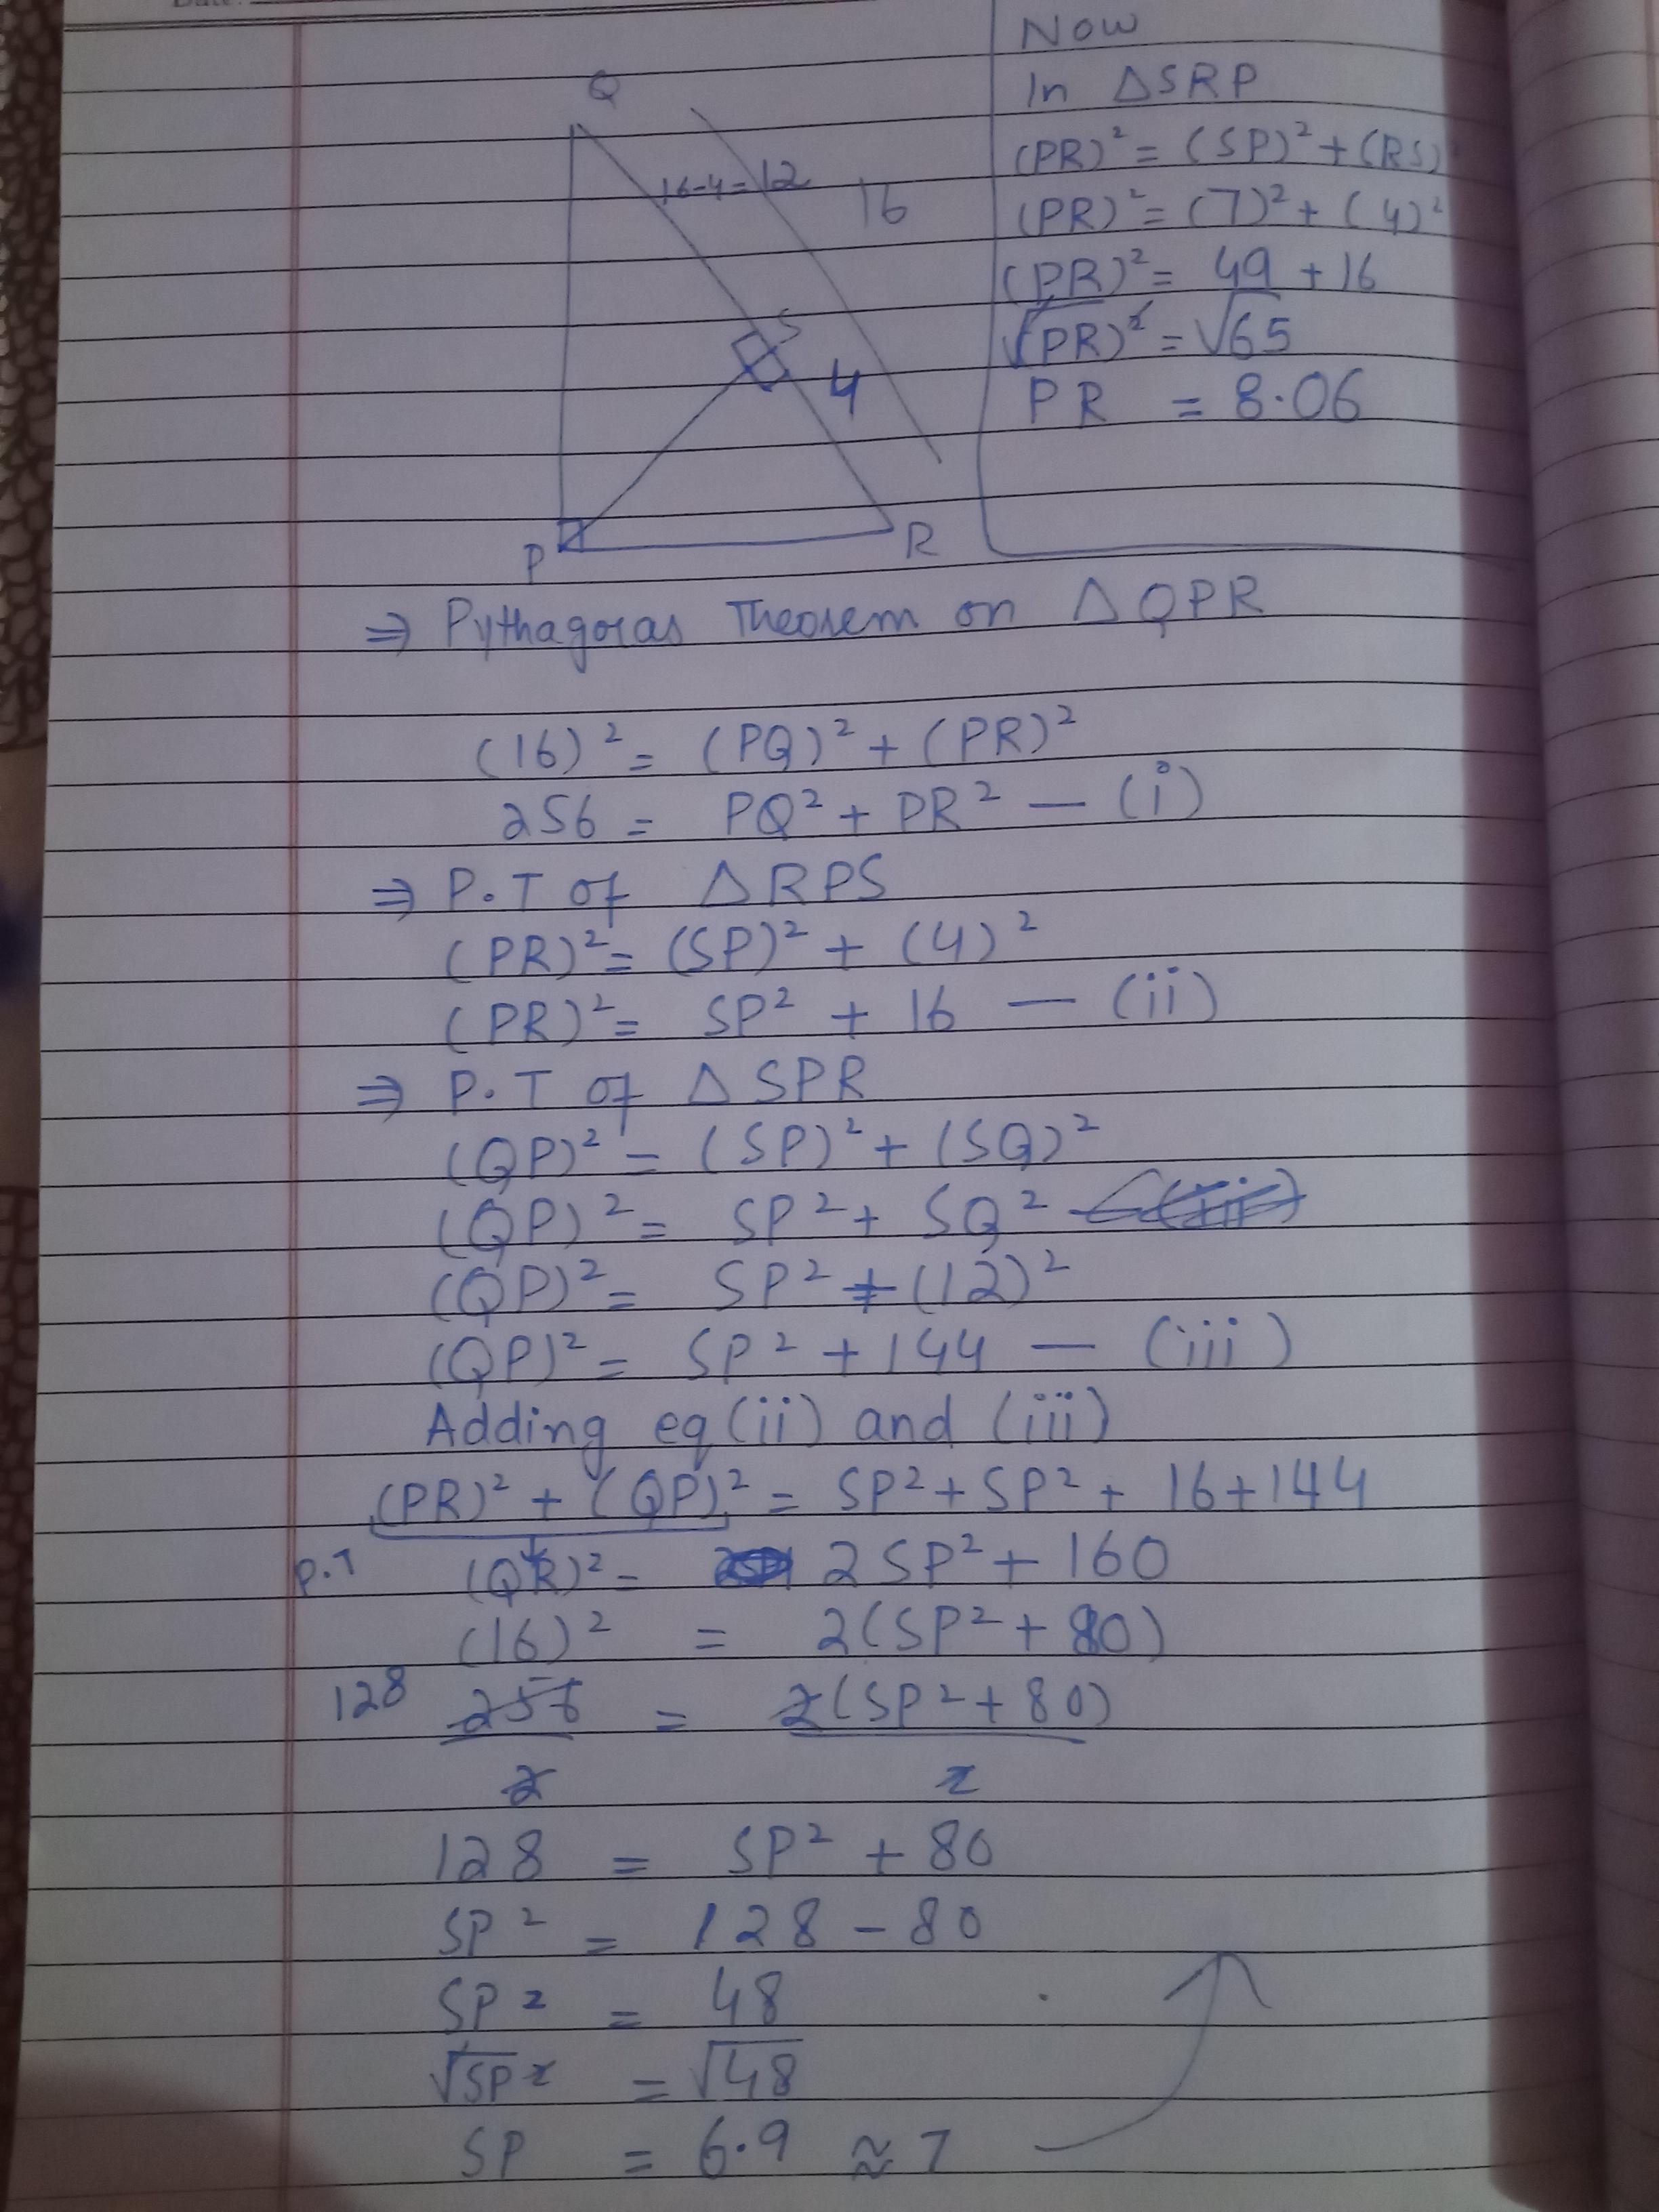 Date:
Q
16-4=12
16
S
4
P
R
Now
In △SRP
(PR)² = (SP)² + (RS)
(PR)² = (7)² + (4)²
(PR)² = 49 + 16
√(PR)² = √65
PR = 8.06
⇒ Pythagoras Theorem on △QPR
(16)² = (PQ)² + (PR)²
256 = PQ² + PR² — (i)
⇒ P.T of △RPS
(PR)² = (SP)² + (4)²
(PR)² = SP² + 16 — (ii)
⇒ P.T of △SPR
(QP)² = (SP)² + (SQ)²
(QP)² = SP² + SQ²
(QP)² = SP² + (12)²
(QP)² = SP² + 144 — (iii)
Adding eq (ii) and (iii)
(PR)² + (QP)² = SP² + SP² + 16 + 144
P.T (QR)² = 2SP² + 160
(16)² = 2(SP² + 80)
128 256 = 2(SP² + 80)
2 2
128 = SP² + 80
SP² = 128 - 80
SP² = 48
√SP² = √48
SP = 6.9 ≈ 7